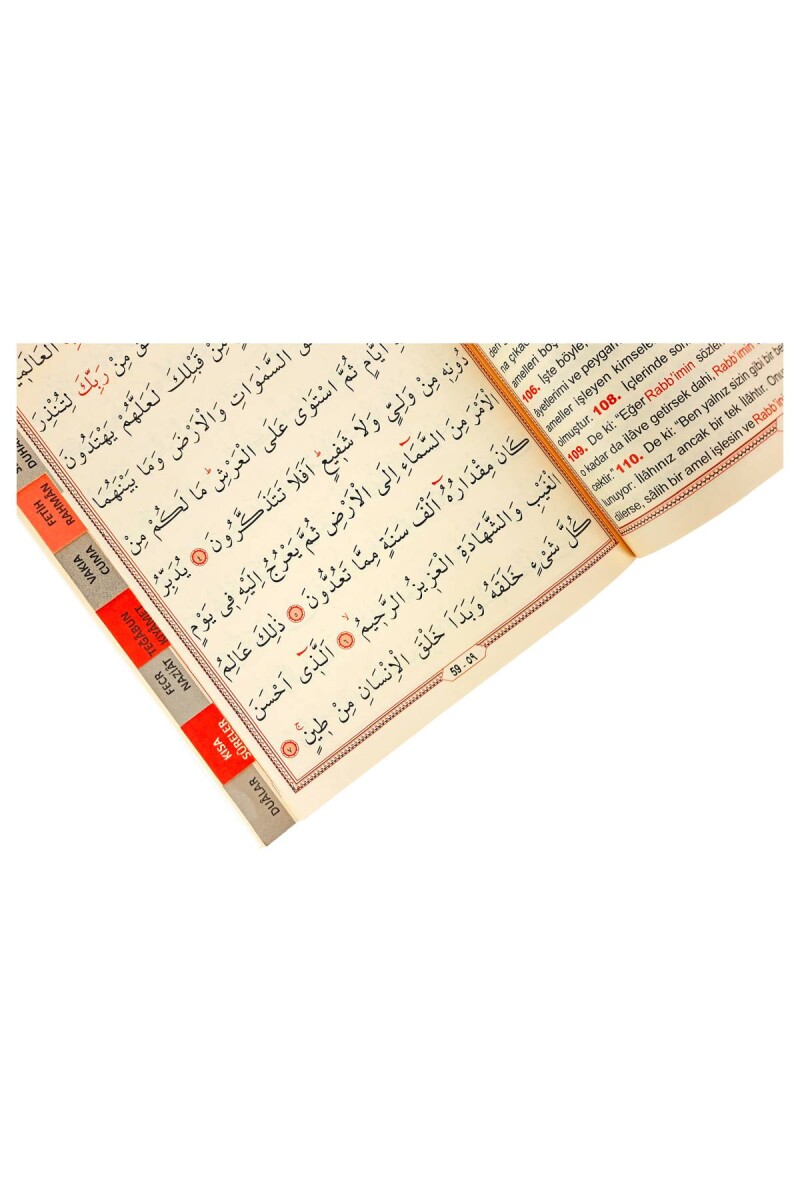 الْعَالَمِينَ
مِنْ رَبِّكَ لِتُنْذِرَ
مِنْ قَبْلِكَ لَعَلَّهُمْ يَهْتَدُونَ
السَّمٰوَاتِ وَالْاَرْضَ وَمَا بَيْنَهُمَا
اَيَّامٍ ثُمَّ اسْتَوٰى عَلَى الْعَرْشِ مَا لَكُمْ مِنْ
دُونِهٖ مِنْ وَلِيٍّ وَلَا شَفٖيعٍ اَفَلَا تَتَذَكَّرُونَ ٤ يُدَبِّرُ
الْاَمْرَ مِنَ السَّمَٓاءِ اِلَى الْاَرْضِ ثُمَّ يَعْرُجُ اِلَيْهِ فٖي يَوْمٍ
كَانَ مِقْدَارُهُٓ اَلْفَ سَنَةٍ مِمَّا تَعُدُّونَ ٥ ذٰلِكَ عَالِمُ
الْغَيْبِ وَالشَّهَادَةِ الْعَزٖيزُ الرَّحٖيمُ ٦ اَلَّذٖٓي اَحْسَنَ
كُلَّ شَيْءٍ خَلَقَهُ وَبَدَاَ خَلْقَ الْاِنْسَانِ مِنْ طٖينٍ ٧
59 - ٥٩
DUHÂN
FETİH
RAHMÂN
VAKIA
CUMA
TEGÂBUN
KIYÂMET
FECR
NAZİÂT
KISA
SÛRELER
DUÂLAR
na çıkac
amelleri boş
106. İşte böyle,
âyetlerimi ve peygam
ameller işleyen kimseler
olmuştur. 108. İçlerinde son
109. De ki: "Eğer Rabb'imin sözler
o kadar da ilâve getirsek dahi, Rabb'imin
cektir." 110. De ki: "Ben yalnız sizin gibi bir be
lunuyor. İlâhınız ancak bir tek ilâhtır.
dilerse, sâlih bir amel işlesin ve Rabb'in